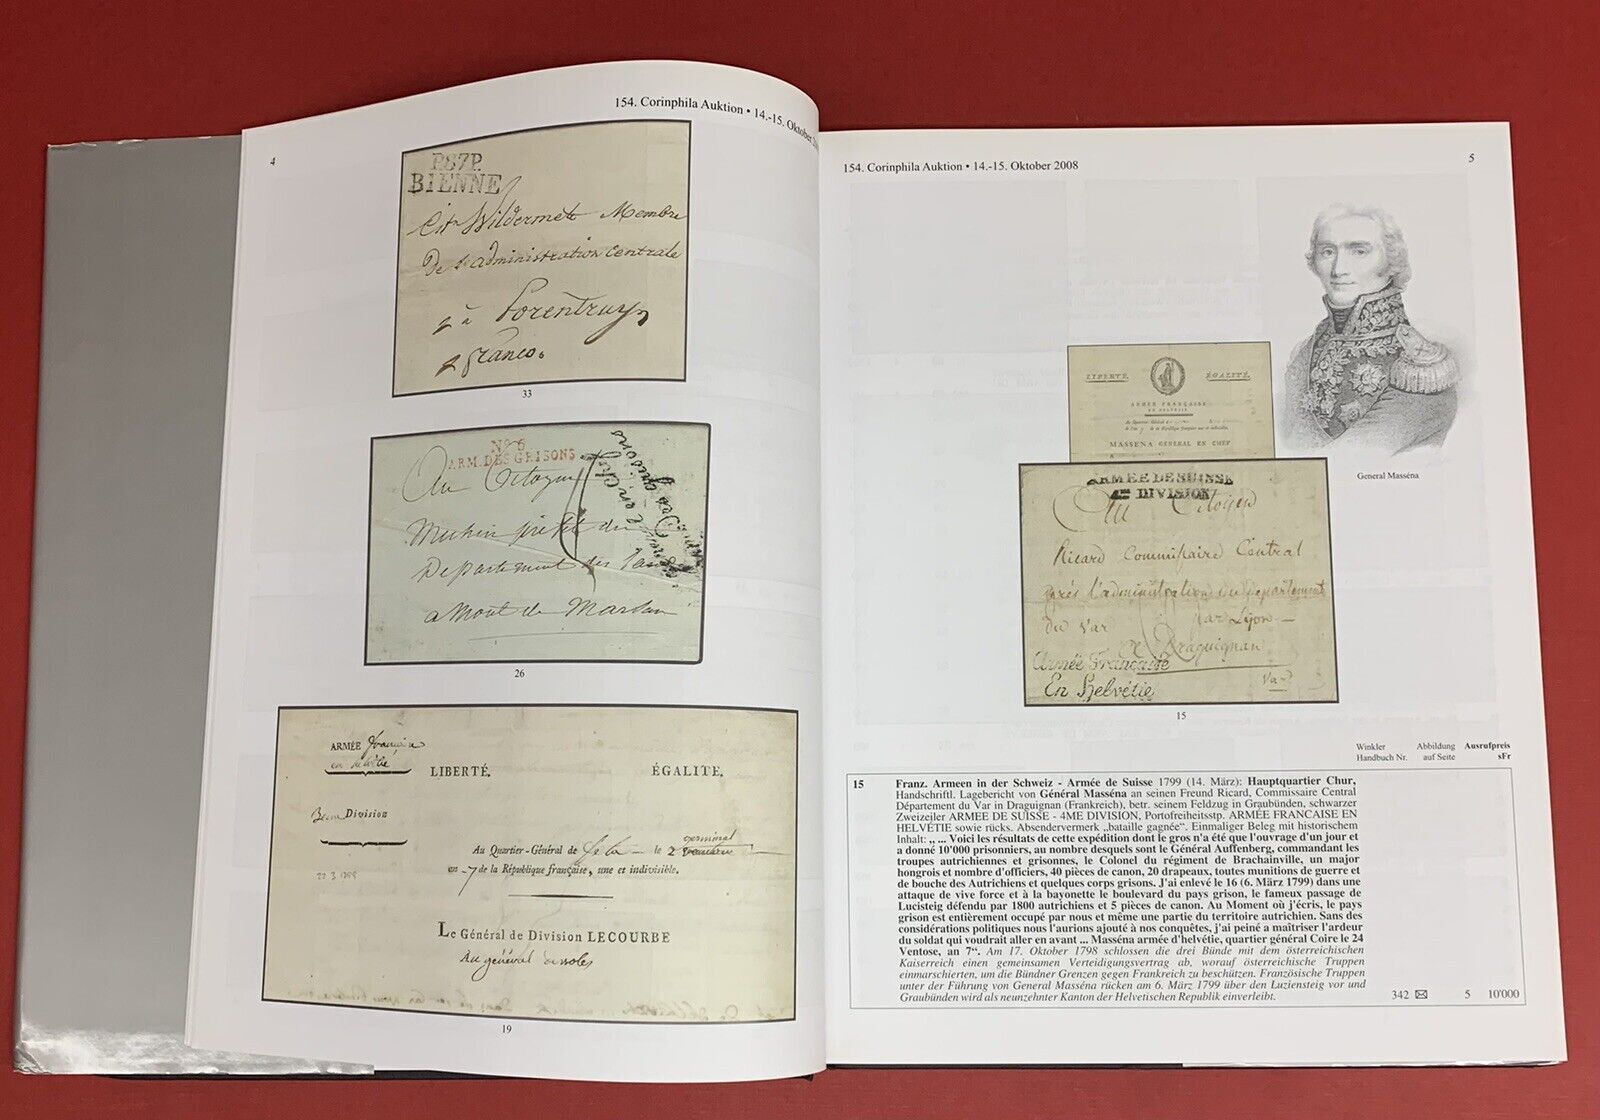 154. Corinphila Auktion • 14.-15. Oktober
4
P87P.
BIENNE
Citn Wildermett Membre
De l'administration Centrale
à Porentruy
franco.
33
No 6
ARM. DES GRISONS
Au Citoyen
préfet du
Departement des
a Mont de Marsan
26
ARMÉE française
en helvétie
LIBERTÉ. ÉGALITÉ.
3eme Division
germinal
Au Quartier-Général de le 2
an 7 de la République française, une et indivisible.
22 3 1799
Le Général de Division LECOURBE
Au général
19
154. Corinphila Auktion • 14.-15. Oktober 2008
5
LIBERTÉ. ÉGALITÉ.
ARMÉE FRANÇAISE
EN HELVÉTIE
MASSENA GÉNÉRAL EN CHEF
General Masséna
ARMÉE DE SUISSE
4ME DIVISION
Au Citoyen
Ricard Commissaire Central
près l'administration du département
du Var par Lyon
a Draguignan
Armée Française
En Helvétie
Var
15
Winkler Abbildung Ausrufpreis
Handbuch Nr. auf Seite sFr
15 Franz. Armeen in der Schweiz - Armée de Suisse 1799 (14. März): Hauptquartier Chur,
Handschriftl. Lagebericht von Général Masséna an seinen Freund Ricard, Commissaire Central
Département du Var in Draguignan (Frankreich), betr. seinem Feldzug in Graubünden, schwarzer
Zweizeiler ARMEE DE SUISSE - 4ME DIVISION, Portofreiheitsstp. ARMÉE FRANCAISE EN
HELVÉTIE sowie rücks. Absendervermerk „bataille gagnée“. Einmaliger Beleg mit historischem
Inhalt: „... Voici les résultats de cette expédition dont le gros n'a été que l'ouvrage d'un jour et
a donné 10'000 prisonniers, au nombre desquels sont le Général Auffenberg, commandant les
troupes autrichiennes et grisonnes, le Colonel du régiment de Brachainville, un major
hongrois et nombre d'officiers, 40 pièces de canon, 20 drapeaux, toutes munitions de guerre et
de bouche des Autrichiens et quelques corps grisons. J'ai enlevé le 16 (6. März 1799) dans une
attaque de vive force et à la bayonette le boulevard du pays grison, le fameux passage de
Lucisteig défendu par 1800 autrichiens et 5 pièces de canon. Au Moment où j'écris, le pays
grison est entièrement occupé par nous et même une partie du territoire autrichien. Sans des
considérations politiques nous l'aurions ajouté à nos conquêtes, j'ai peiné a maîtriser l'ardeur
du soldat qui voudrait aller en avant ... Masséna armée d'helvétie, quartier général Coire le 24
Ventose, an 7“. Am 17. Oktober 1798 schlossen die drei Bünde mit dem österreichischen
Kaiserreich einen gemeinsamen Verteidigungsvertrag ab, worauf österreichische Truppen
einmarschierten, um die Bündner Grenzen gegen Frankreich zu beschützen. Französische Truppen
unter der Führung von General Masséna rücken am 6. März 1799 über den Luziensteig vor und
Graubünden wird als neunzehnter Kanton der Helvetischen Republik einverleibt.
342 ✉ 5 10'000